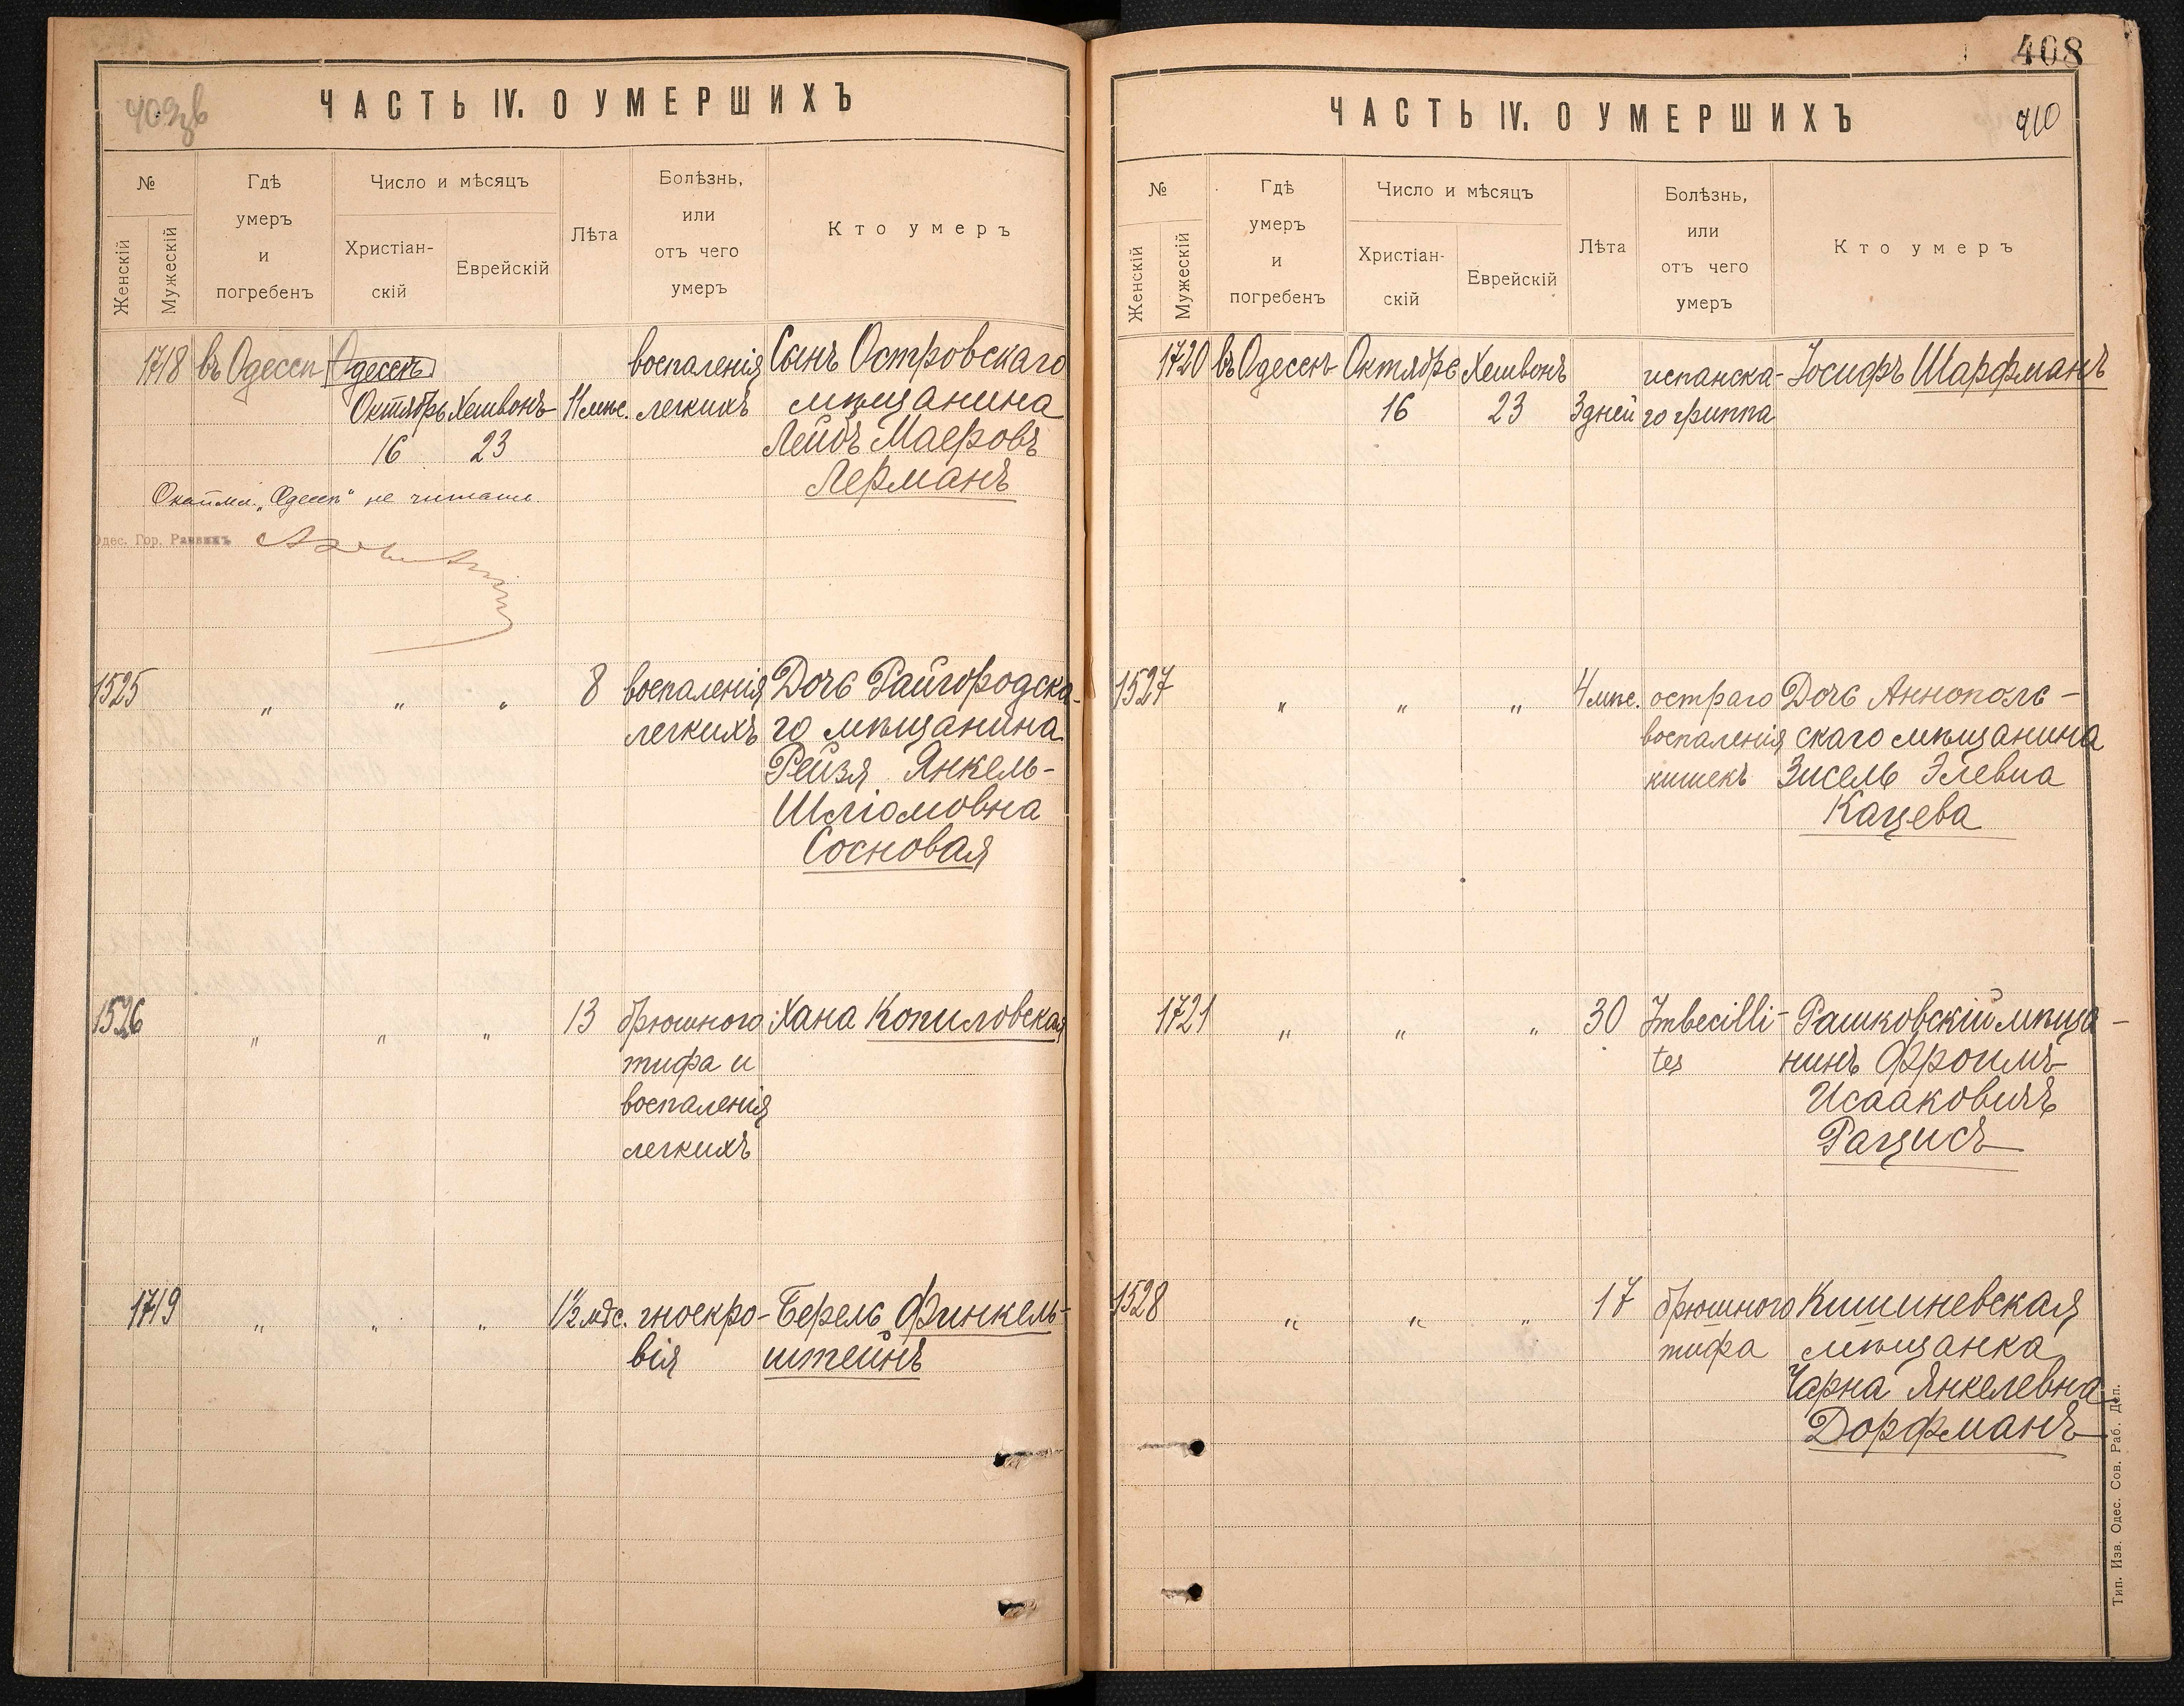 409 зв
ЧАСТЬ IV. О УМЕРШИХЪ
№
Женскій
Мужескій
Гдѣ
умеръ
и
погребенъ
Число и мѣсяцъ
Христіан-
скій
Еврейскій
Лѣта
Болѣзнь,
или
отъ чего
умеръ
Кто умеръ
1718 въ Одессѣ Одессѣ воспаленія Сынъ Островскаго
Октябрь Хешвонъ 11 мѣс. легкихъ мѣщанина
16 23 Лейбъ Маеровъ
Лерманъ
Окаймл. „Одессѣ" не читать.
Одес. Гор. Раввинъ
1525 „ „ „ 8 воспаленія Дочь Райгородска-
легкихъ го мѣщанина
Рейзя Янкель-
Шліомовна
Сосновая
1526 „ „ „ 13 брюшного Хана Копиловская
тифа и
воспаленія
легкихъ
1719 „ „ „ 1½ мѣс. гноекро- Берель Финкель-
вія штейнъ
408
410
ЧАСТЬ IV. О УМЕРШИХЪ
№
Женскій
Мужескій
Гдѣ
умеръ
и
погребенъ
Число и мѣсяцъ
Христіан-
скій
Еврейскій
Лѣта
Болѣзнь,
или
отъ чего
умеръ
Кто умеръ
1720 въ Одессѣ Октябрь Хешвонъ испанска- Іосифъ Шарфманъ
16 23 3 дней го гриппа
1527 „ „ „ 4 мѣс. остраго Дочь Аннополь-
воспаленія скаго мѣщанина
кишекъ Зисель Элевна
Кацева
1721 „ „ „ 30 Imbecilli- Рашковскій мѣща-
tes нинъ Фроимъ
Исааковичъ
Рацисъ
1528 „ „ „ 17 брюшного Кишиневская
тифа мѣщанка
Чарна Янкелевна
Дорфманъ
Тип. Изв. Одес. Сов. Раб. Деп.